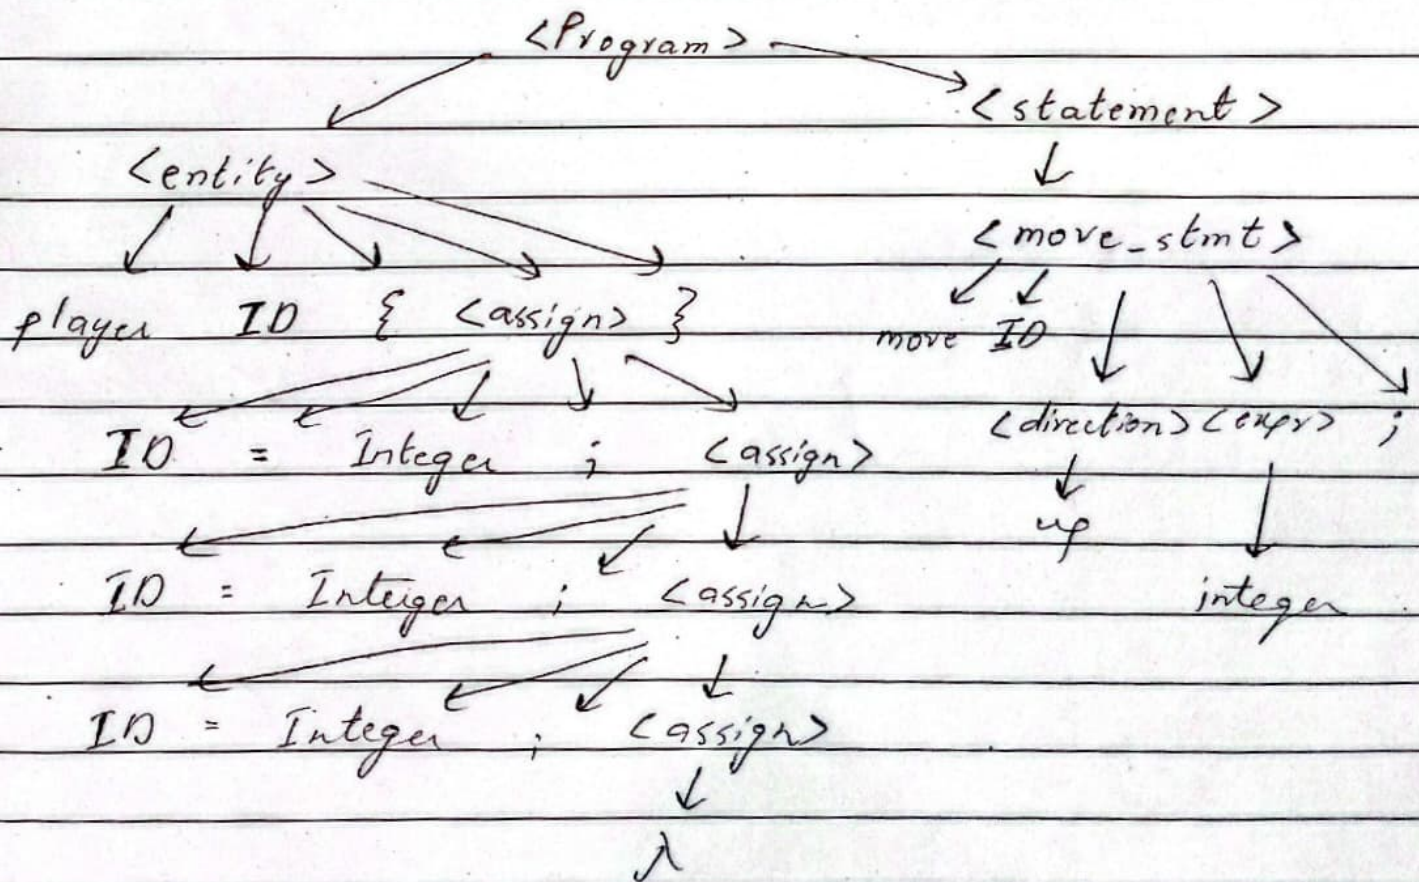 <Program>
<statement>
<entity>
<move_stmt>
player ID { <assign> }
move ID
<direction> <expr> ;
ID = Integer ; <assign>
up
ID = Inteiger ; <assign>
integer
ID = Integer ; <assign>
λ